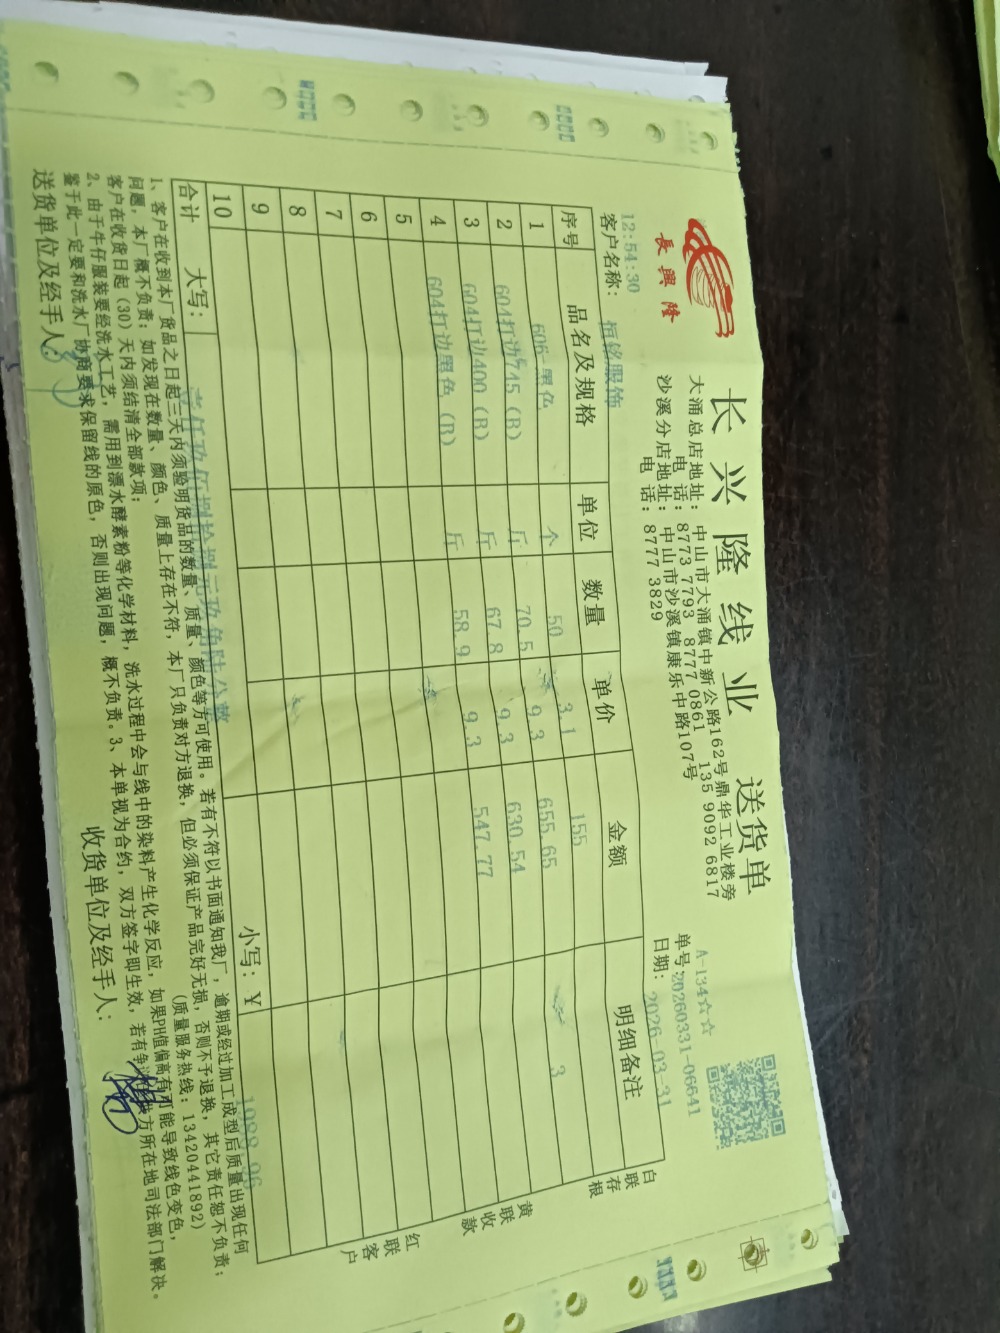 長興隆
长兴隆线业 送货单
大涌总店地址: 中山市大涌镇中新公路162号鼎华工业楼旁
电 话: 8773 7793 8777 0861 135 9092 6817
沙溪分店地址: 中山市沙溪镇康乐中路107号
电 话: 8777 3829
A-134☆☆
单号:20260331-06641
12:54:30
客户名称: 恒铭服饰
日期: 2026-03-31
序号 品名及规格 单位 数量 单价 金额 明细备注
1 606-黑色 个 50 3.1 155 3
2 604打边745 (B) 斤 70.5 9.3 655.65
3 604打边400 (B) 斤 67.8 9.3 630.54
4 604打边黑色 (B) 斤 58.9 9.3 547.77
5
6
7
8
9
10
合计 大写: 壹仟玖佰捌拾捌元玖角陆分整 小写: ¥ 1988.96
1、客户在收到本厂货品之日起三天内须验明货品的数量、质量、颜色等方可使用。若有不符以书面通知我厂, 逾期或经过加工成型后质量出现任何
问题, 本厂概不负责; 如发现在数量、颜色、质量上存在不符, 本厂只负责对方退换, 但必须保证产品完好无损, 否则不予退换, 其它责任恕不负责;
客户在收货日起 (30) 天内须结清全部款项; (质量服务热线: 13420441892)
2、由于牛仔服装要经洗水工艺, 需用到漂水酵素粉等化学材料, 洗水过程中会与线中的染料产生化学反应, 如果PH值偏高有可能导致线色变色,
鉴于此一定要和洗水厂协商要求保留线的原色, 否则出现问题, 概不负责。3、本单视为合约, 双方签字即生效, 若有争议 方所在地司法部门解决。
送货单位及经手人: 收货单位及经手人:
白联存根
黄联收款
红联客户